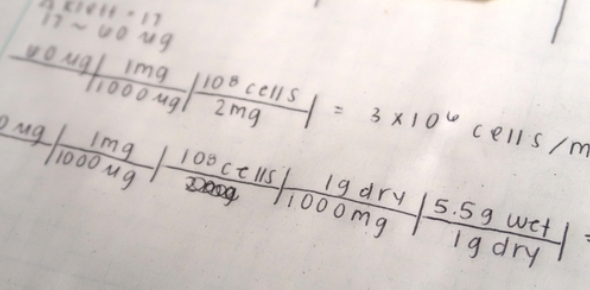 17 ~ 60 µg
60 µg | 1mg / 1000 µg | 10⁸ cells / 2mg | = 3 x 10⁶ cells/m
0 µg | 1mg / 1000 µg | 10⁸ cells | 1g dry / 1000mg | 5.5g wet / 1g dry | =